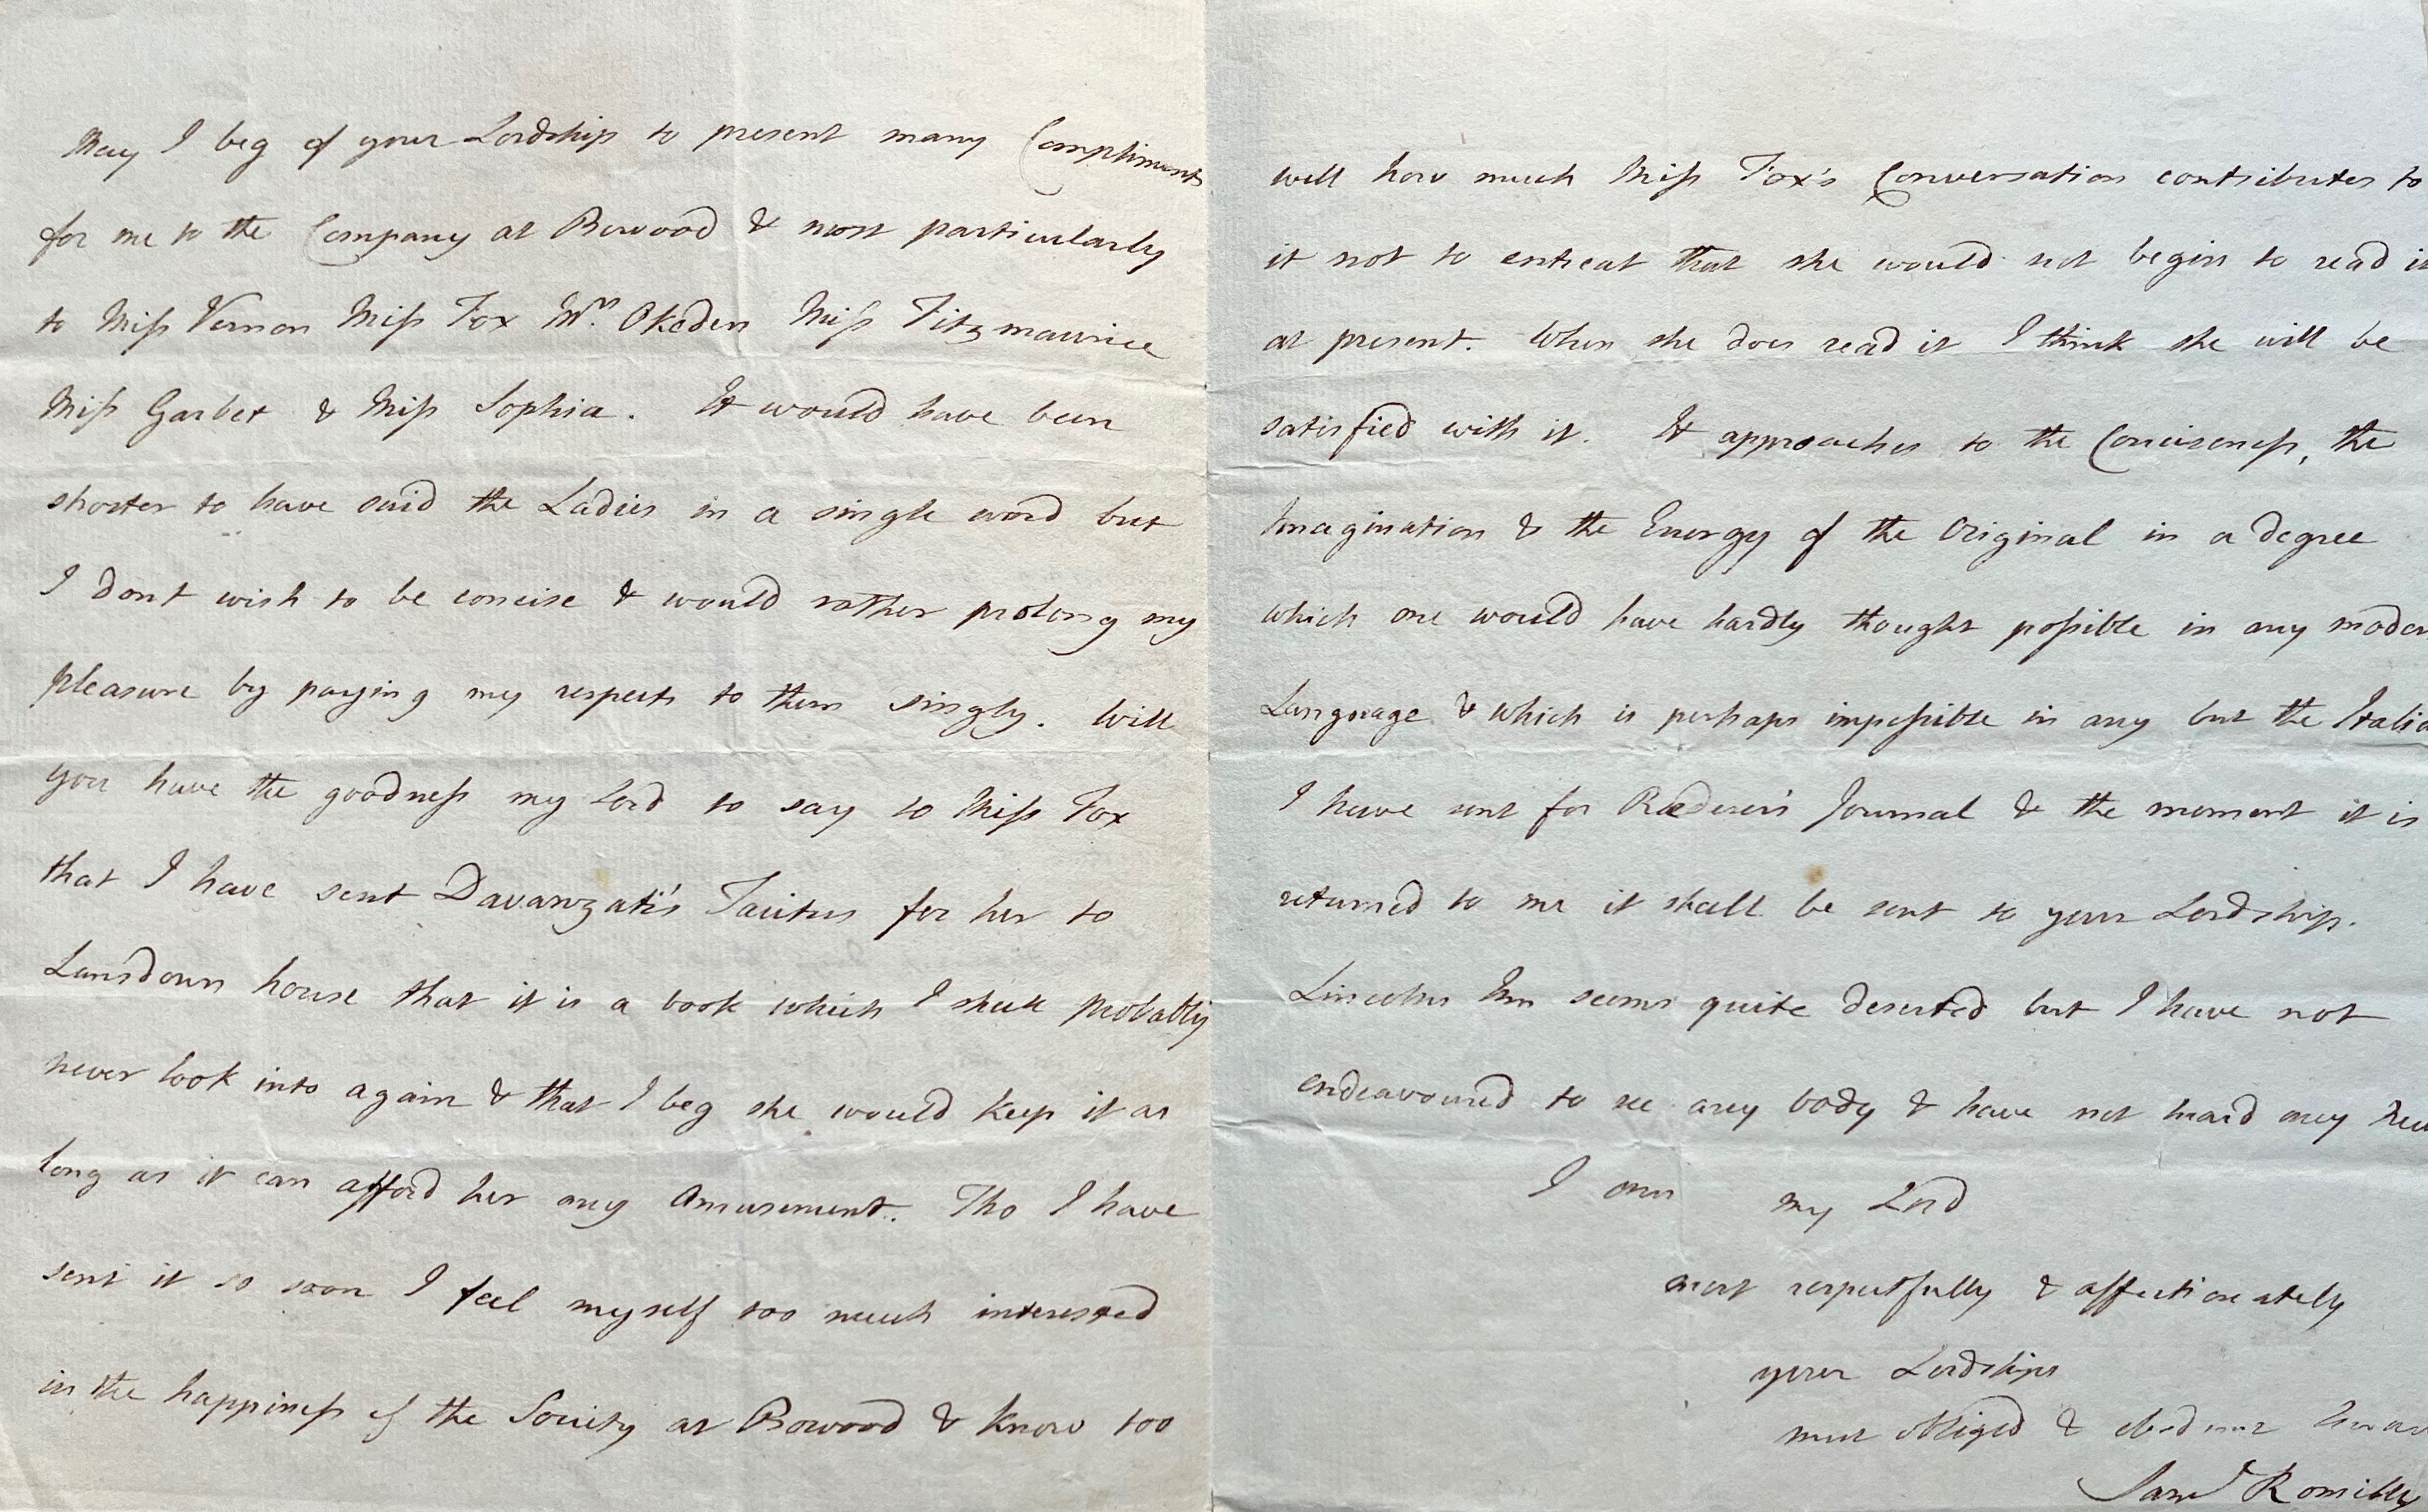 May I beg of your Lordship to present many Compliments
for me to the Company at Bowood & most particularly
to Miss Vernon Miss Fox Mrs. Okeden Miss Fitzmaurice
Miss Garbet & Miss Sophia. It would have been
shorter to have said the Ladies in a single word but
I dont wish to be concise & would rather prolong my
pleasure by paying my respects to them singly. Will
you have the goodness my Lord to say to Miss Fox
that I have sent Davanzati's Tacitus for her to
Lansdown house that it is a book which I shall probably
never look into again & that I beg she would keep it as
long as it can afford her any Amusement. Tho I have
sent it so soon I feel myself too much interested
in the happiness of the Society at Bowood & know too
well how much Miss Fox's Conversation contributes to
it not to entreat that she would not begin to read it
at present. When she does read it I think she will be
satisfied with it. It approaches to the Conciseness, the
Imagination & the Energy of the Original in a degree
which one would have hardly thought possible in any modern
Language & which is perhaps impossible in any but the Italia
I have sent for Rœderer's Journal & the moment it is
returned to me it shall be sent to your Lordship.
Lincolns Inn seems quite deserted but I have not
endeavoured to see any body & have not heard any New
I am my Lord
most respectfully & affectionately
your Lordships
most obliged & obedient Servan
Saml Romilly